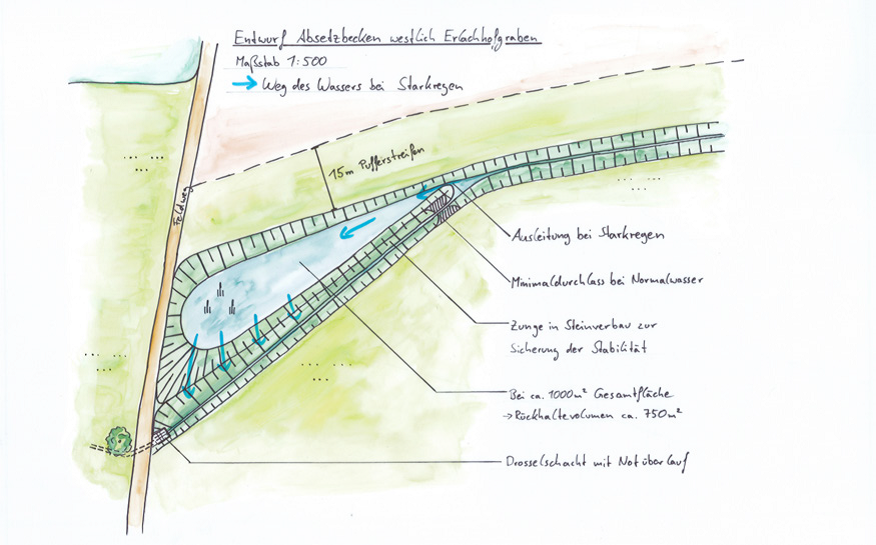 Entwurf Absetzbecken westlich Erlachhofgraben
Maßstab 1:500
Weg des Wassers bei Starkregen
15m Pufferstreifen
Feldweg
Ausleitung bei Starkregen
Minimaldurchlass bei Normalwasser
Zunge in Steinverbau zur
Sicherung der Stabilität
Bei ca. 1000m² Gesamtfläche
→ Rückhaltevolumen ca. 750m²
Drosselschacht mit Notüberlauf